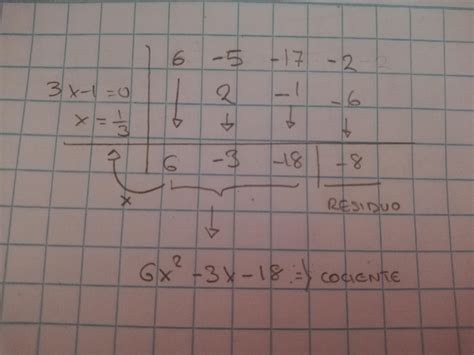 6 -5 -17 -2
3x-1=0 2 -1 -6
x=1/3
6 -3 -18 -8
x
RESIDUO
6x² -3x -18 => COCIENTE